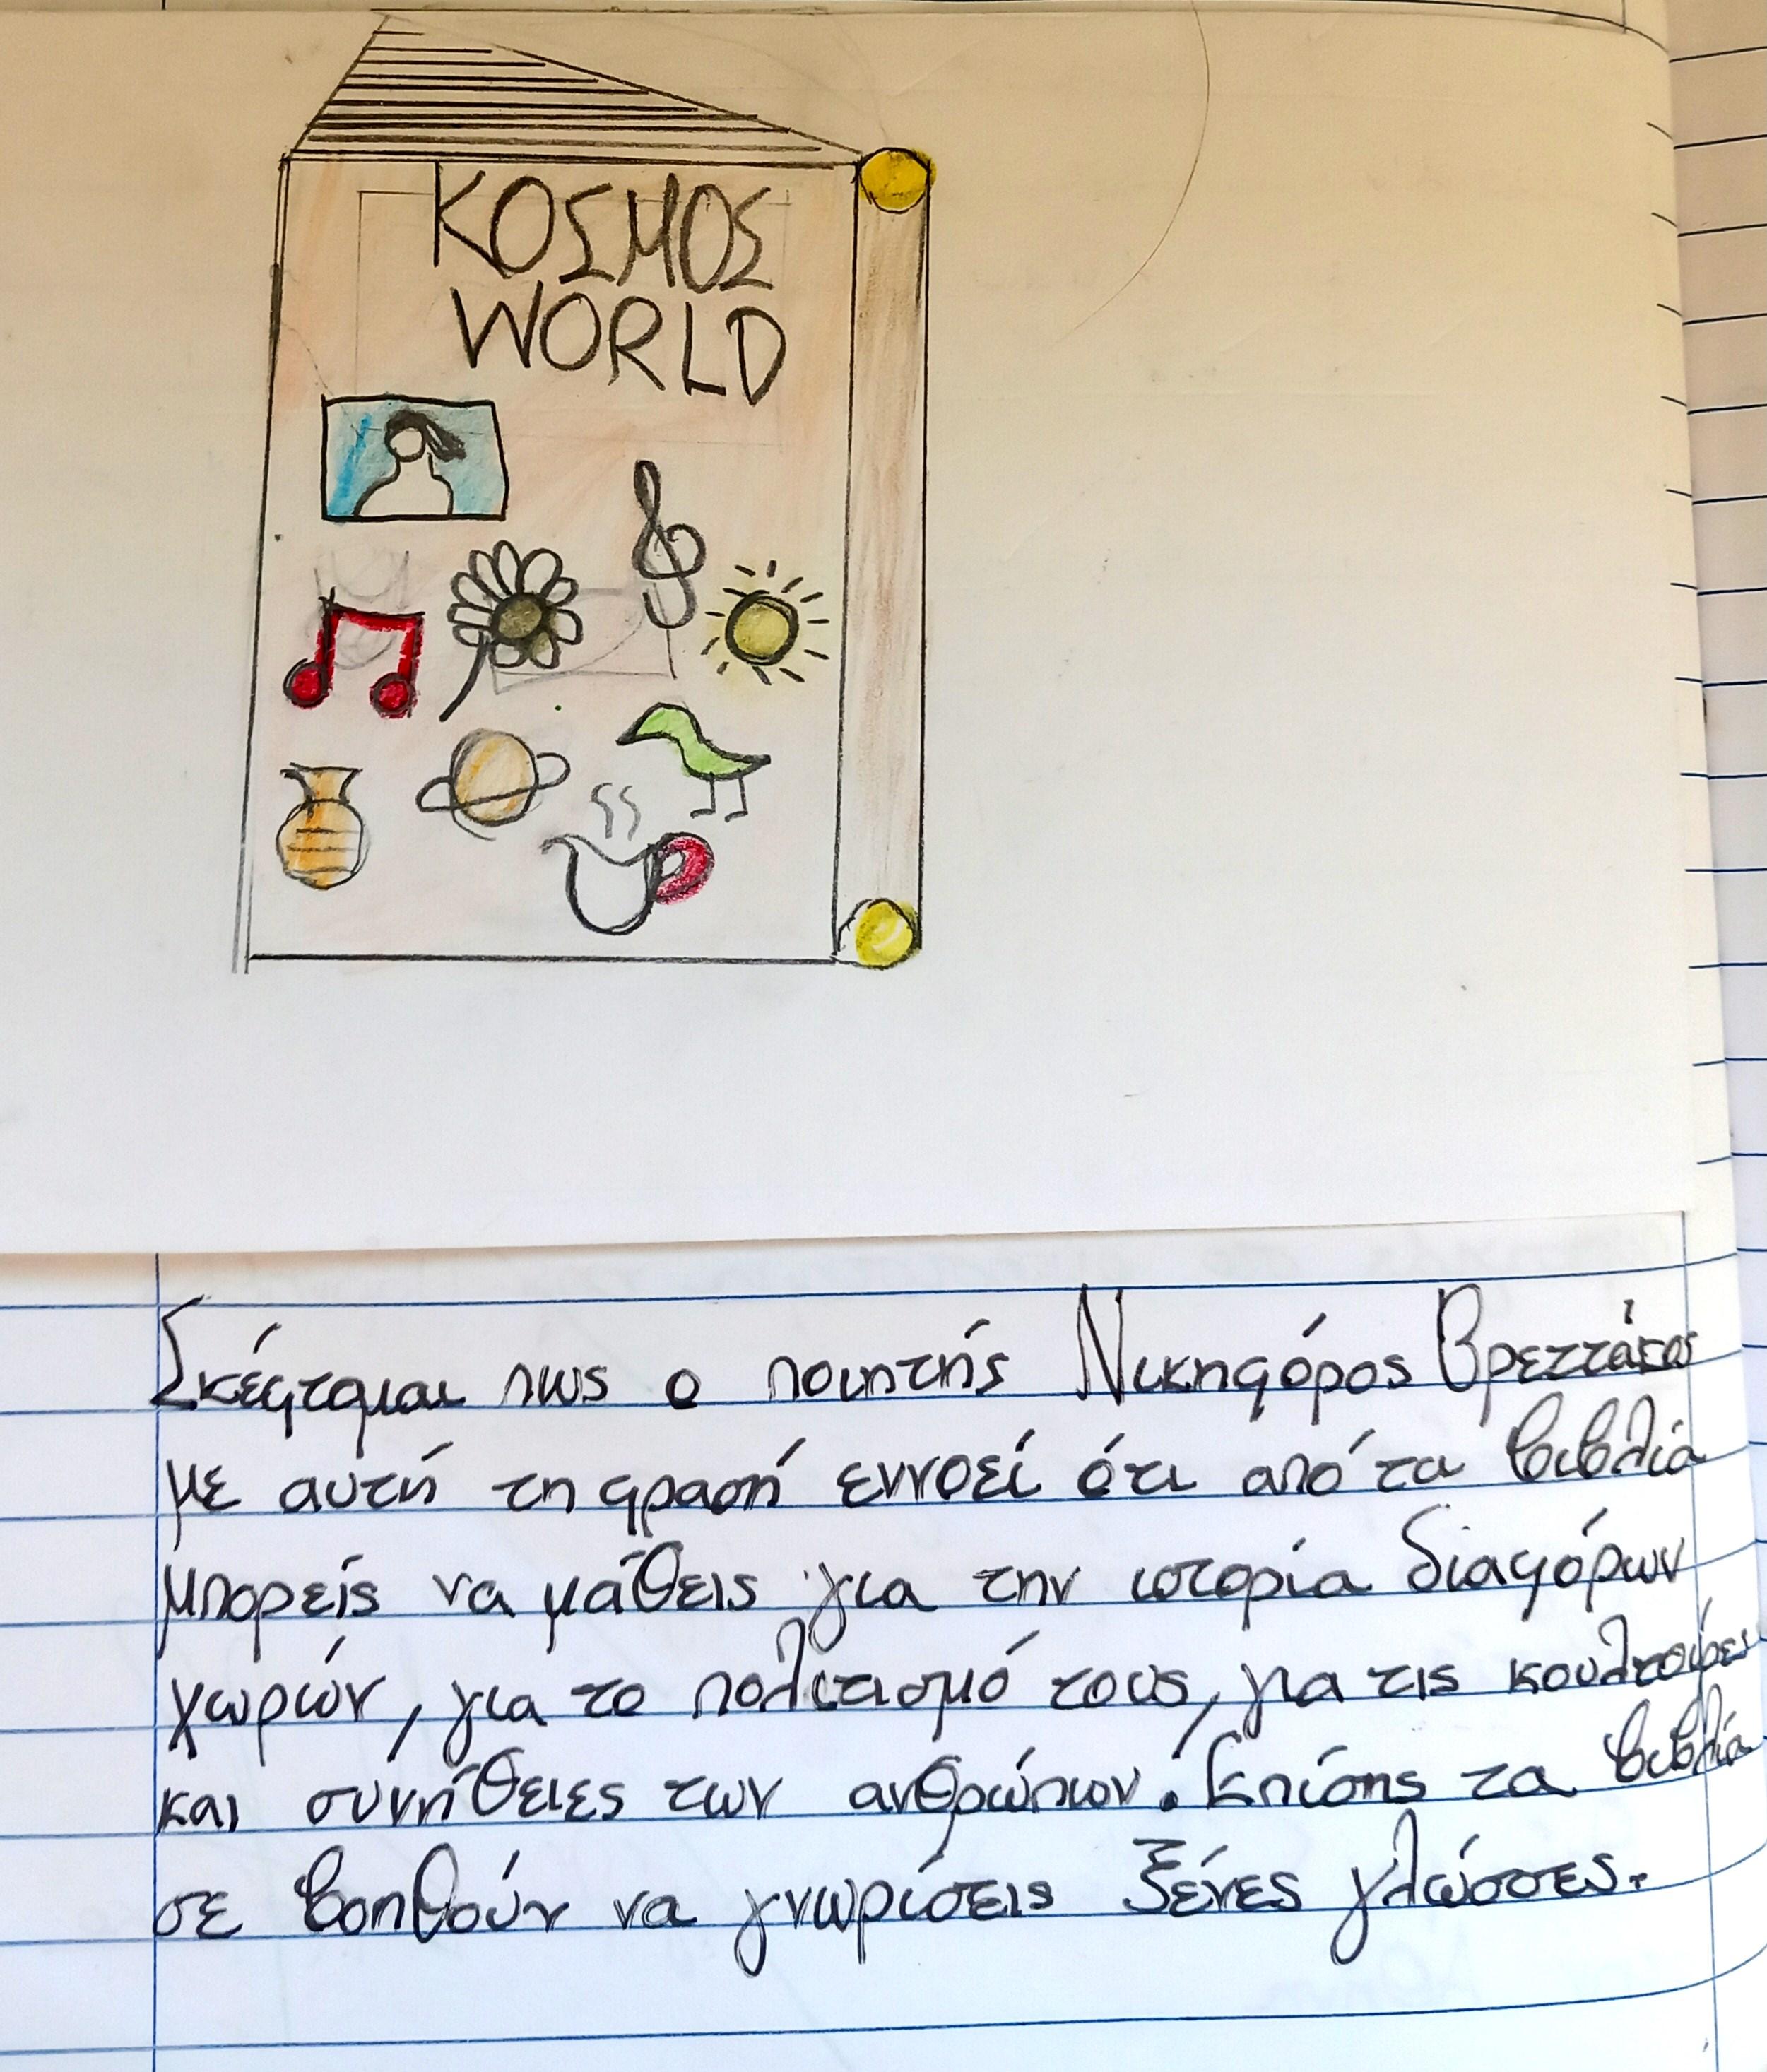 ΚΟΣΜΟΣ
WORLD
Σκέφτομαι πως ο ποιητής Νικηφόρος Βρεττάκος
με αυτή τη φρασή εννοεί ότι από τα βιβλία
μπορείς να μάθεις για την ιστορία διαφόρων
χωρών, για το πολιτισμό τους, για τις κουλτούρες
και συνήθειες των ανθρώπων. Επίσης τα βιβλία
σε βοηθούν να γνωρίσεις ξένες γλώσσες.